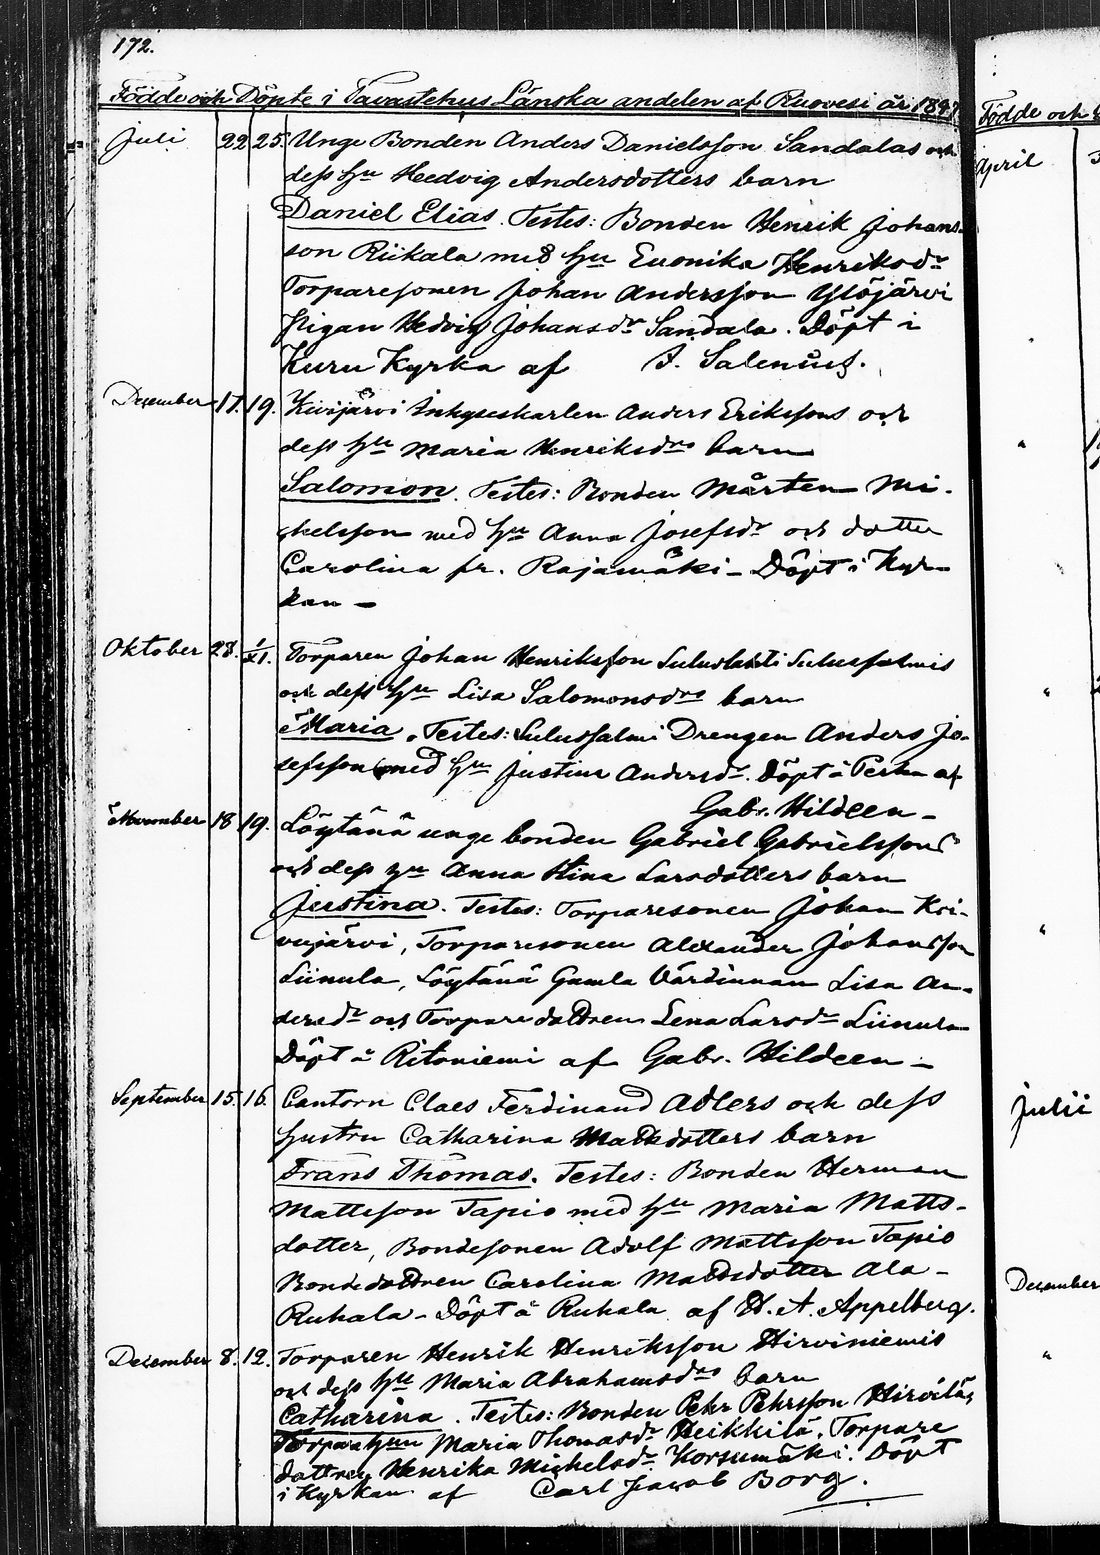 172.
Födde och Döpte i Tavastehus Länska andelen af Ruovesi år
Födde och
Juli 22 25. Unge Bonden Anders Danielsson Sandalas och
dess hu Hedvig Andersdotters barn
Daniel Elias. Testes: Bonden Henrik Johans-
son Riikala med hu Euonika Henriksdr
Torparesonen Johan Andersson Ylöjärvi
Pigan Hedvig Johansdr Sandala. Döpt i
Kuru Kyrka af Salenius.
December 17. 19. Kivijärvi Inhyseskarlen Anders Erikssons och
dess hu Maria Henriksdrs barn
Salomon. Testes: Bonden Mårten Mi-
chelsson med hu Anna Josefsdr och dotter
Carolina fr. Rajamäki - Döpt i Kyr-
kan -
Oktober 28. 1/XI. Torparen Johan Henriksson Sulusalmis
och dess hu Lisa Salomonsdrs barn
Maria. Testes: Sulusalmi Drengen Anders Jo-
sefsson med hu Justina Andersdr. Döpt å af
Gabr. Hildeen -
November 18 19. Löytänä unge bonden Gabriel Gabrielssons
och dess hu Anna Stina Larsdotters barn
Justina. Testes: Torparesonen Johan Koi-
vujärvi, Torparesonen Alexander Johansson
Liinula, Löytänä Gamla Värdinnan Lisa An-
dersdr och Torparedottren Lena Larsdr Liinula
Döpt å Ritoniemi af Gabr. Hildeen -
September 15. 16. Cantorn Claes Ferdinand Adlers och dess
hustru Catharina Mattsdotters barn
Frans Thomas. Testes: Bonden Herman
Mattsson Tapio med hu Maria Matts-
dotter, Bondesonen Adolf Mattsson Tapio
Bondedottren Carolina Mattsdotter Ala-
Ruhala - Döpt å Ruhala af H. A. Appelberg.
December 8. 12. Torparen Henrik Henriksson Hirviniemis
och dess hu Maria Abrahamsdrs barn
Catharina. Testes: Bonden Pehr Pehrsson Hirvilä,
Torparehun Maria Thomasdr Heikkilä, Torpare
dottren Henrika Michelsdr Korsumäki. Döpt
i Kyrkan af Carl Jacob Borg.
April
Julii
December